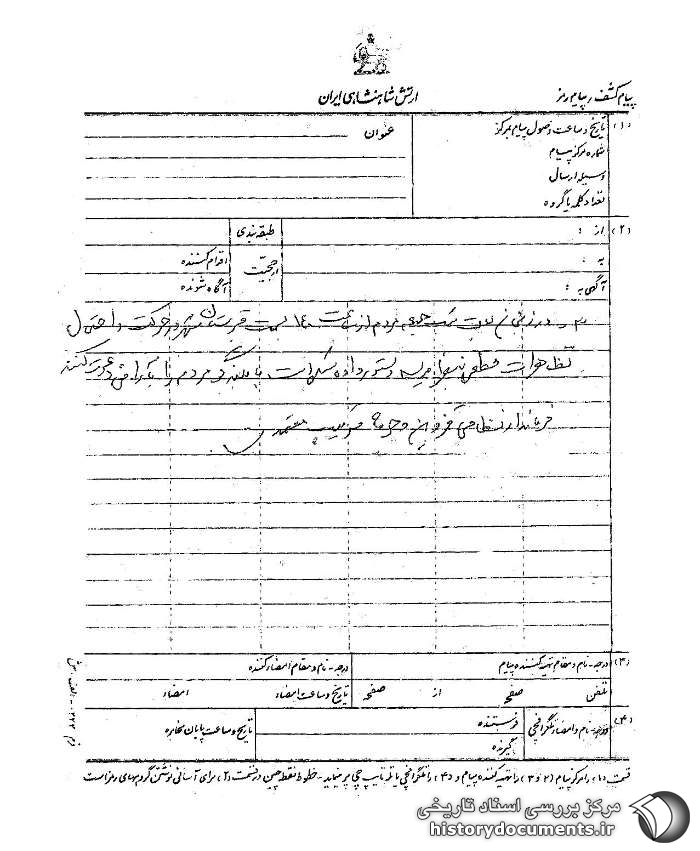 ارتش شاهنشاهی ایران
پیام کشف، پیام رمز
(۱) تاریخ و ساعت وصول پیام بمرکز
عنوان
شماره مرکز پیام
وسیله ارسال
تعداد کلمه یا گروه
(۲) از :
طبقه بندی
به :
ارجحیت
اقدام کننده
آگهی به :
آگاه شونده
۳ - در زنجان جمعیت مردم از ساعت ۱۴۰۰ بسمت قبرستان شهر در حرکت و احتمال
تظاهرات دستور داده شده است با بلندگو مردم را به آرامش دعوت کنند
فرماندار نظامی قزوین و حومه سرتیپ معتمدی
(۳) درجه - نام و مقام تهیه کننده پیام
درجه - نام و مقام امضاء کننده
تلفن صفحه از صفحه
تاریخ و ساعت امضاء امضاء
(۴) درجه - نام و امضاء تلگرافچی
فرستنده
گیرنده
تاریخ و ساعت پایان مخابره
قسمت (۱) را مرکز پیام (۲ و ۳) را تهیه کننده پیام و (۴) را تلگرافچی یا تله تایپ چی پر نماید - خطوط نقطه چین در قسمت (۲) برای آسانی نوشتن گروههای رمز است
مرکز بررسی اسناد تاریخی
historydocuments.ir